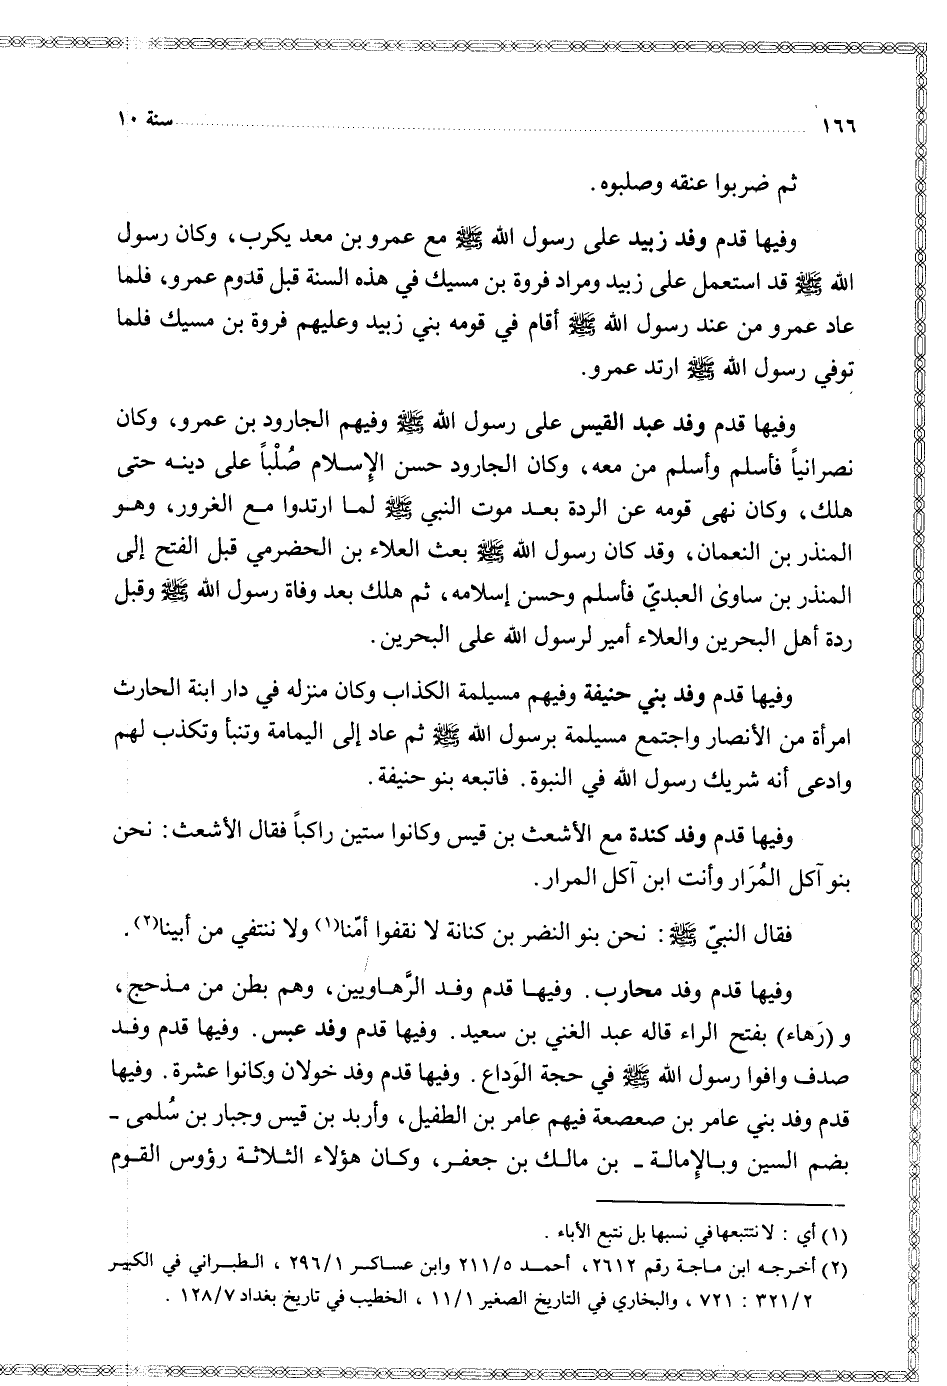 ١٦٦ سنة ١٠
ثم ضربوا عنقه وصلبوه.
وفيها قدم وفد زبيد على رسول الله ﷺ مع عمرو بن معد يكرب، وكان رسول
الله ﷺ قد استعمل على زبيد ومراد فروة بن مسيك في هذه السنة قبل قدوم عمرو، فلما
عاد عمرو من عند رسول الله ﷺ أقام في قومه بني زبيد وعليهم فروة بن مسيك فلما
توفي رسول الله ﷺ ارتد عمرو.
وفيها قدم وفد عبد القيس على رسول الله ﷺ وفيهم الجارود بن عمرو، وكان
نصرانياً فأسلم وأسلم من معه، وكان الجارود حسن الإسلام صُلْباً على دينه حتى
هلك، وكان نهى قومه عن الردة بعد موت النبي ﷺ لما ارتدوا مع الغرور، وهو
المنذر بن النعمان، وقد كان رسول الله ﷺ بعث العلاء بن الحضرمي قبل الفتح إلى
المنذر بن ساوىٰ العبديّ فأسلم وحسن إسلامه، ثم هلك بعد وفاة رسول الله ﷺ وقبل
ردة أهل البحرين والعلاء أمير لرسول الله على البحرين.
وفيها قدم وفد بني حنيفة وفيهم مسيلمة الكذاب وكان منزله في دار ابنة الحارث
امرأة من الأنصار واجتمع مسيلمة برسول الله ﷺ ثم عاد إلى اليمامة وتنبأ وتكذب لهم
وادعى أنه شريك رسول الله في النبوة. فاتبعه بنو حنيفة.
وفيها قدم وفد كندة مع الأشعث بن قيس وكانوا ستين راكباً فقال الأشعث: نحن
بنو آكل المُرَار وأنت ابن آكل المرار.
فقال النبيّ ﷺ: نحن بنو النضر بن كنانة لا نقفوا أمّنا(١) ولا ننتفي من أبينا(٢).
وفيها قدم وفد محارب. وفيها قدم وفد الرَّهاويين، وهم بطن من مذحج،
و (رَهاء) بفتح الراء قاله عبد الغني بن سعيد. وفيها قدم وفد عبس. وفيها قدم وفد
صدف وافوا رسول الله ﷺ في حجة الوَداع. وفيها قدم وفد خولان وكانوا عشرة. وفيها
قدم وفد بني عامر بن صعصعة فيهم عامر بن الطفيل، وأربد بن قيس وجبار بن سُلمى ـ
بضم السين وبالإمالة ـ بن مالك بن جعفر، وكان هؤلاء الثلاثة رؤوس القوم
(١) أي : لا نتتبعها في نسبها بل نتبع الأباء .
(٢) أخرجه ابن ماجة رقم ٢٦١٢، أحمد ٢١١/٥ وابن عساكر ٢٩٦/١ ، الطبراني في الكبير
٣٢١/٢ : ٧٢١ ، والبخاري في التاريخ الصغير ١١/١ ، الخطيب في تاريخ بغداد ١٢٨/٧ .